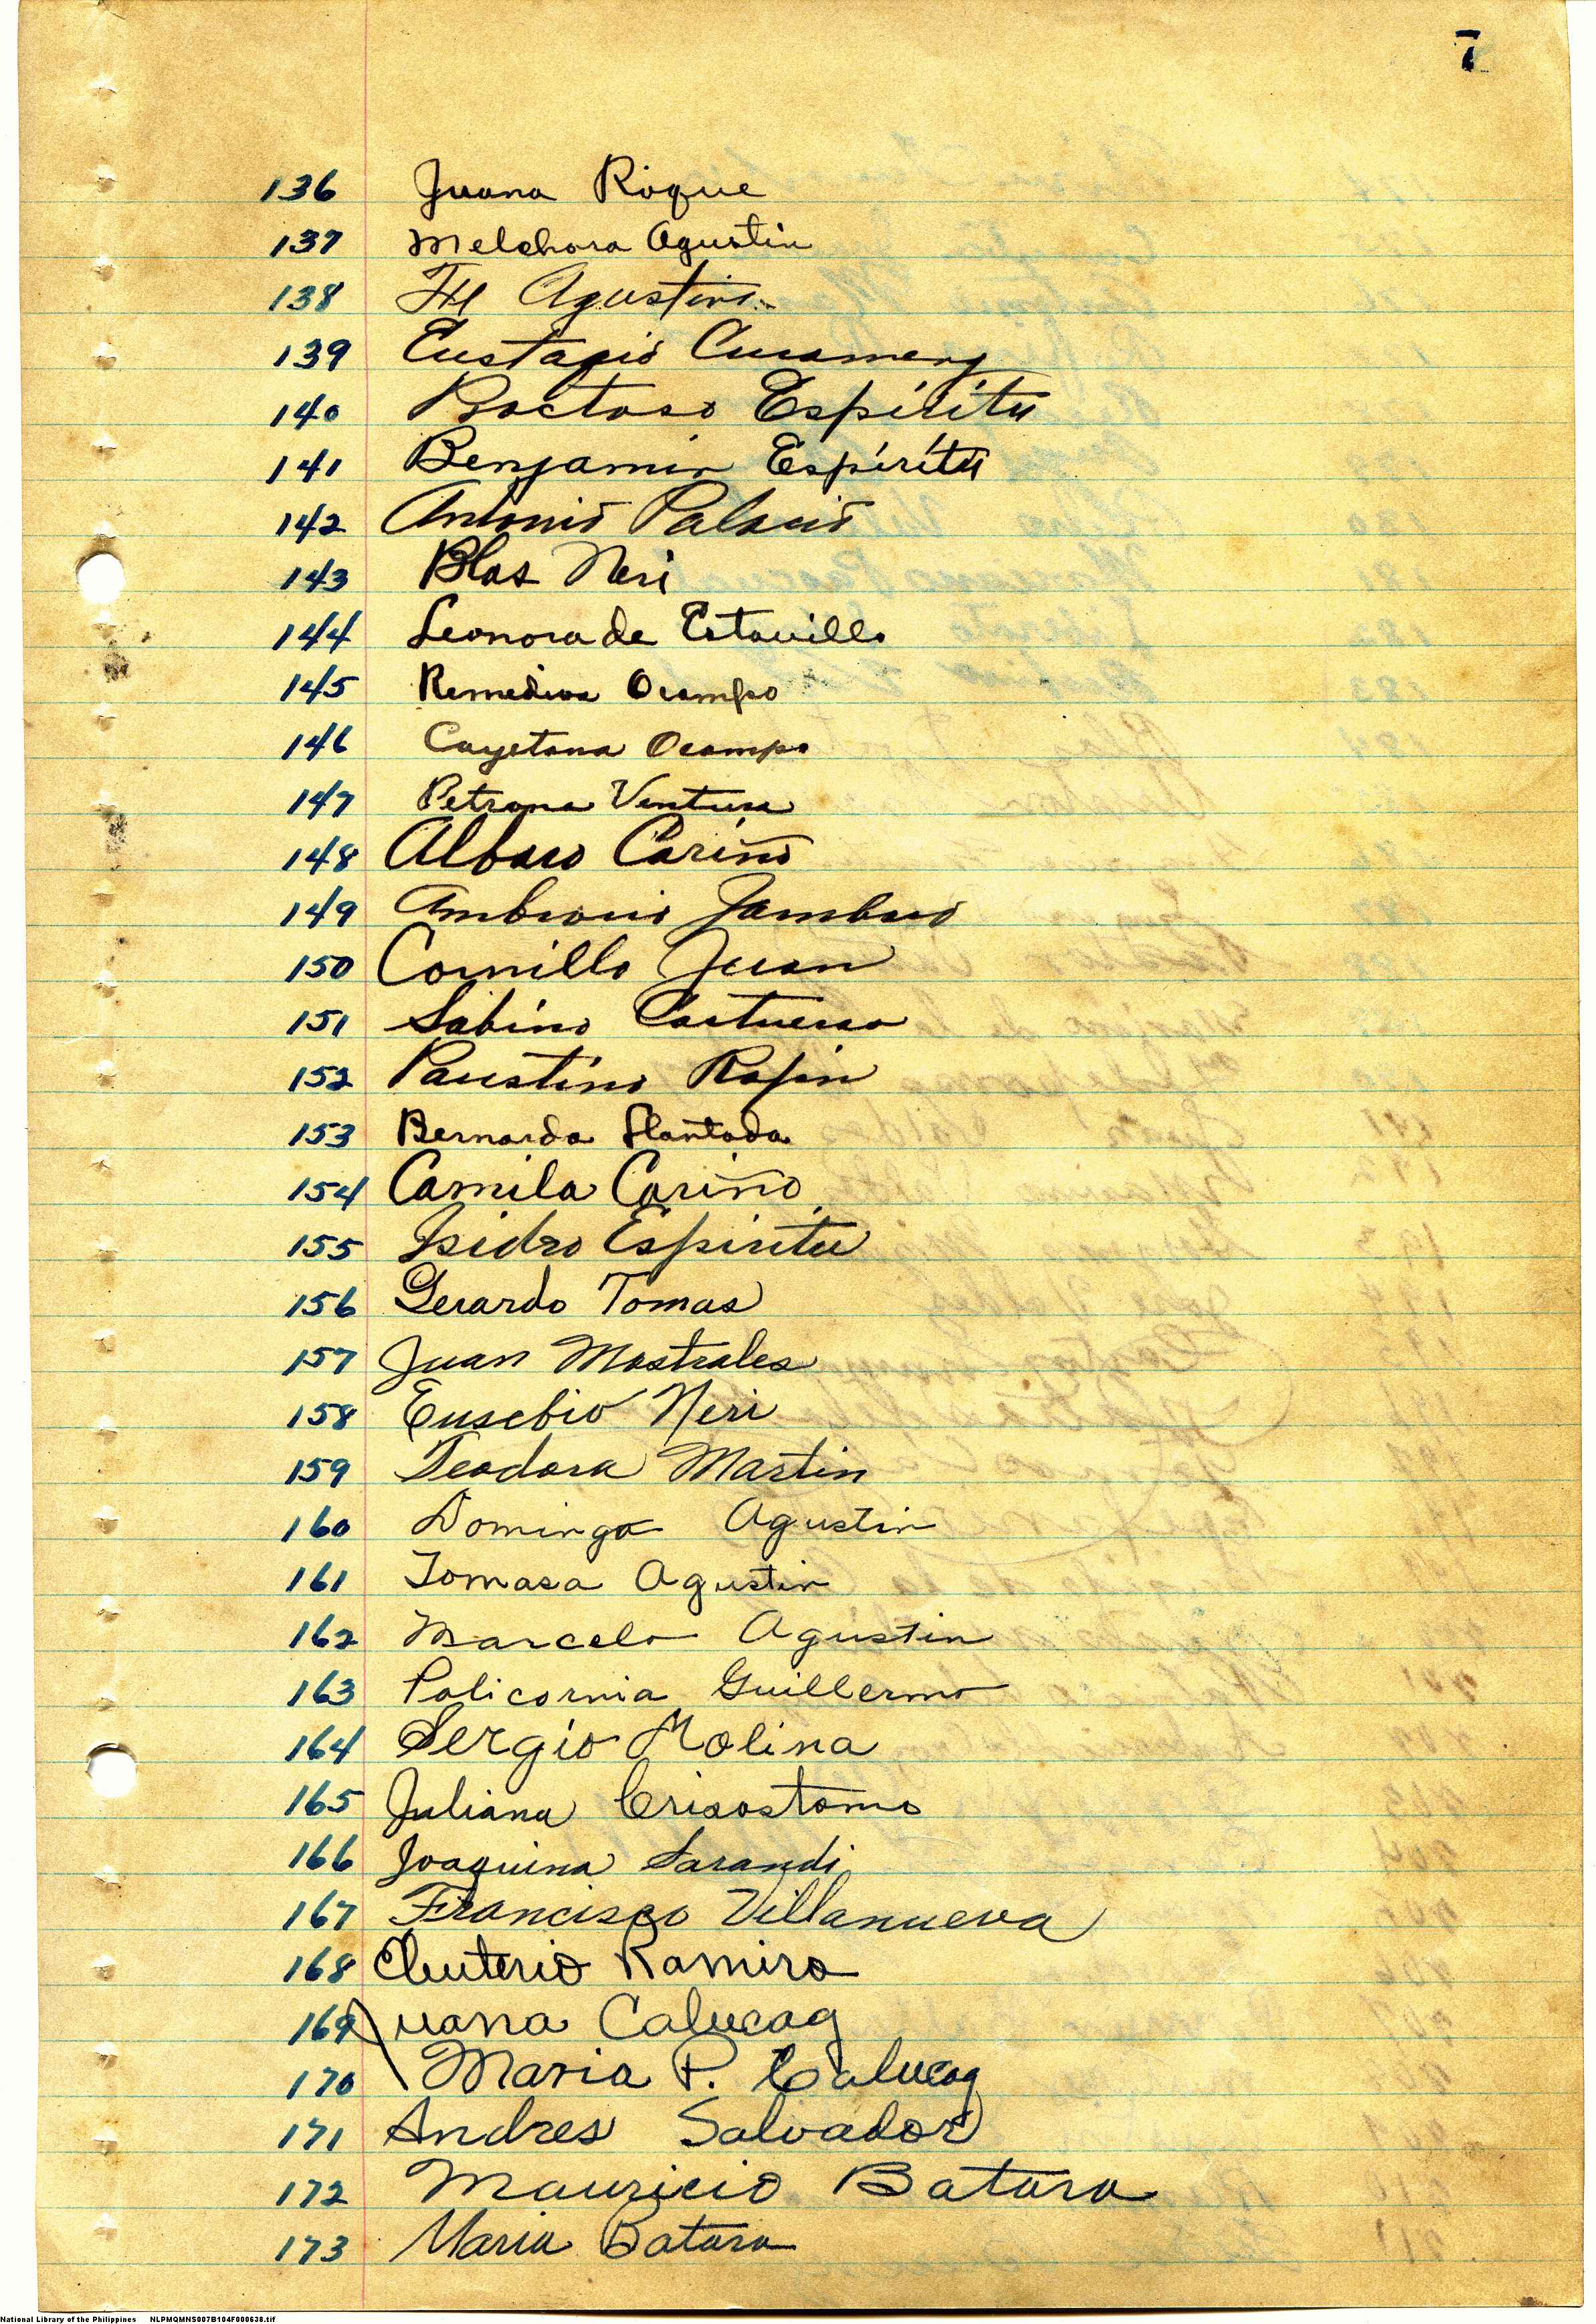 7
136 Juana Roque
137 Melchora Agustin
138 Fe Agustin
139 Eustagio
140 Espiritu
141 Benjamin Espiritu
142 Antonio Palacio
143 Blas Neri
144 Leonora de Estavillo
145 Remedios Ocampo
146 Cayetana Ocampo
147 Petrona Ventura
148 Albaro Cariño
149 Ambrocio Jambaro
150 Juan
151 Sabino
152 Faustino
153 Bernarda Llantada
154 Camila Cariño
155 Isidro Espiritu
156 Gerardo Tomas
157 Juan Mostrales
158 Eusebio Neri
159 Teodora Martin
160 Domingo Agustin
161 Tomasa Agustin
162 Marcelo Agustin
163 Policornia Guillermo
164 Sergio Molina
165 Juliana Crisostomo
166 Joaquina Sarandi
167 Francisco Villanueva
168 Eleuterio Ramiro
169 Juana Calucag
170 Maria P. Calucag
171 Andres Salvador
172 Mauricio Batara
173 Maria Batara
National Library of the Philippines NLPMQMNS007B104F000638.tif